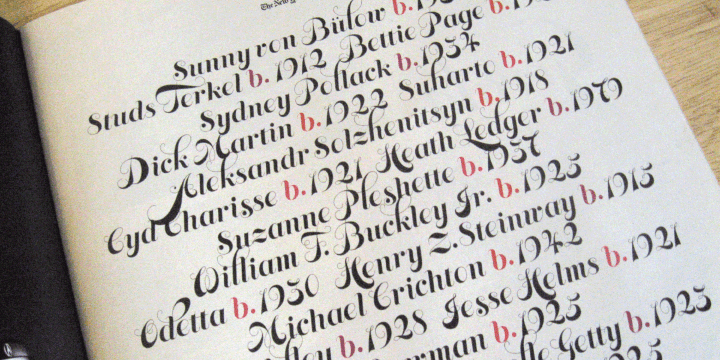 The New
Sunny von Bülow b.
Studs Terkel b. 1912 Bettie Page b.
Sydney Pollack b.1934
Dick Martin b.1922 Suharto b.1921
Aleksandr Solzhenitsyn b.1918
Cyd Charisse b.1921 Heath Ledger b.1979
Suzanne Pleshette b.1937
William F. Buckley Jr. b.1925
Odetta b.1930 Henry Z. Steinway b.1915
Michael Crichton b.1942
b.1928 Jesse Helms b.1921
erman b.1925
Getty b.1923